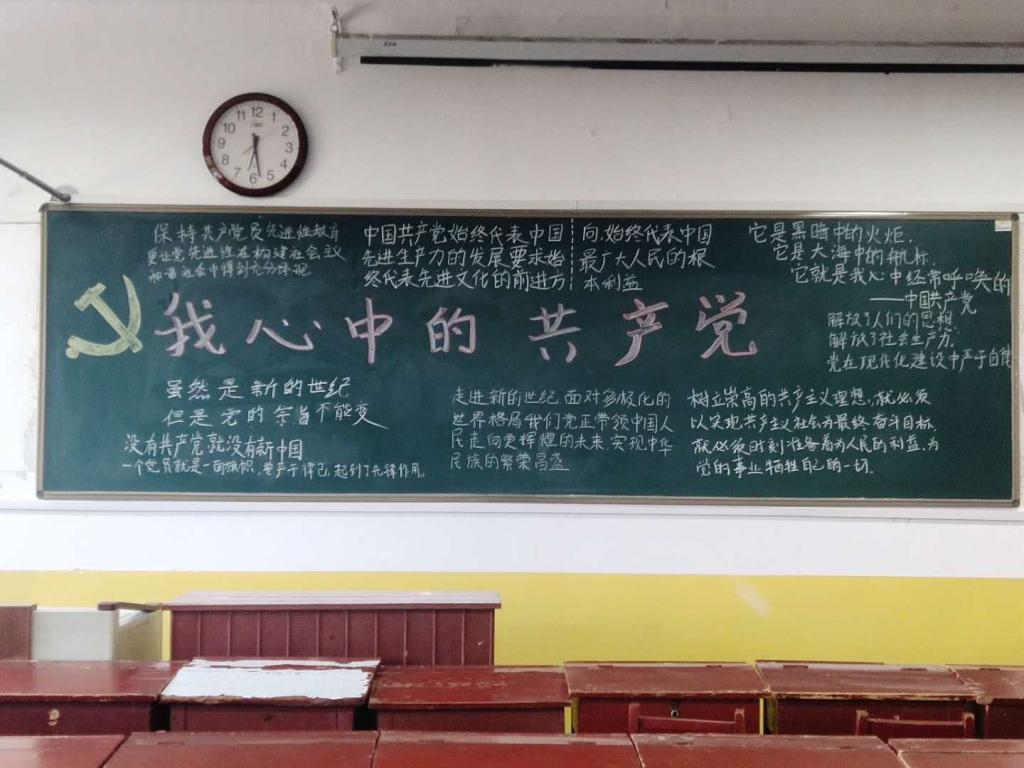 12
1
2
3
4
5
6
7
8
9
10
11
保持共产党员先进性教育
更让党先进性在构建社会主义
和谐社会中得到充分体现
中国共产党始终代表中国
先进生产力的发展要求始
终代表先进文化的前进方
向,始终代表中国
最广大人民的根
本利益
它是黑暗中的火炬,
它是大海中的航标,
它就是我心中经常呼唤的
——中国共产党
解放了人们的思想,
解放了社会生产力.
党在现代化建设中严于自律
我心中的共产党
虽然是新的世纪
但是党的宗旨不能变
没有共产党就没有新中国
一个党员就是一面旗帜,要严于律己,起到了先锋作用。
走进新的世纪,面对多极化的
世界格局我们党正带领中国人
民走向更辉煌的未来,实现中华
民族的繁荣昌盛
树立崇高的共产主义理想,就必须
以实现共产主义社会为最终奋斗目标,
就必须时刻准备着为人民的利益,为
党的事业牺牲自己的一切.